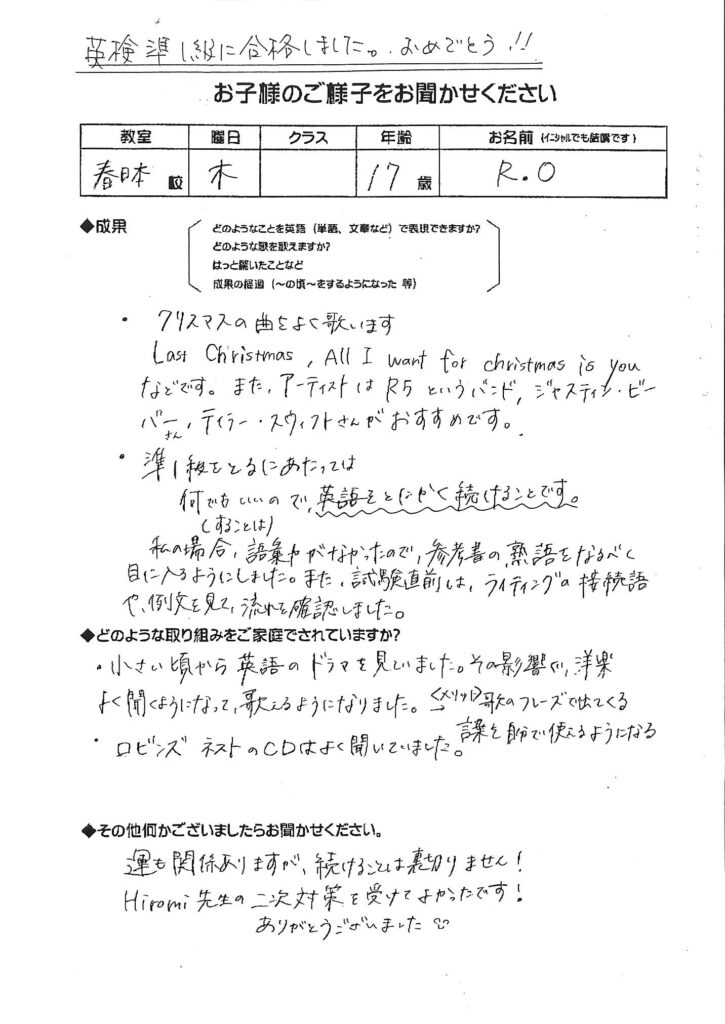 英検準1級に合格しました。おめでとう!!
お子様のご様子をお聞かせください
教室 曜日 クラス 年齢 お名前 (イニシャルでも結構です)
春日本校 木 17歳 R.O
◆成果
どのようなことを英語（単語、文章など）で表現できますか?
どのような歌を歌えますか?
はっと驚いたことなど
成果の経過（～の頃～をするようになった 等）
・クリスマスの曲をよく歌います
Last Christmas, All I want for christmas is you
などです。また、アーティストは R5 というバンド, ジャスティン・ビー
バーさん, テイラー・スウィフトさんがおすすめです。
・準1級をとるにあたっては
何でもいいので、英語をとにかく続けることです。
(することは)
私の場合、語彙力がなかったので、参考書の熟語をなるべく
目に入るようにしました。また、試験直前は、ライティングの接続語
や、例文を見て、流れを確認しました。
◆どのような取り組みをご家庭でされていますか?
・小さい頃から英語のドラマを見ていました。その影響で、洋楽
よく聞くようになって、歌えるようになりました。<メリット>歌のフレーズで出てくる
→ 言葉を自分で使えるようになる
・ロビンズ ネストのCDはよく聞いていました。
◆その他何かございましたらお聞かせください。
運も関係ありますが、続けることは裏切りません!
Hiromi先生の二次対策を受けてよかったです!
ありがとうございました